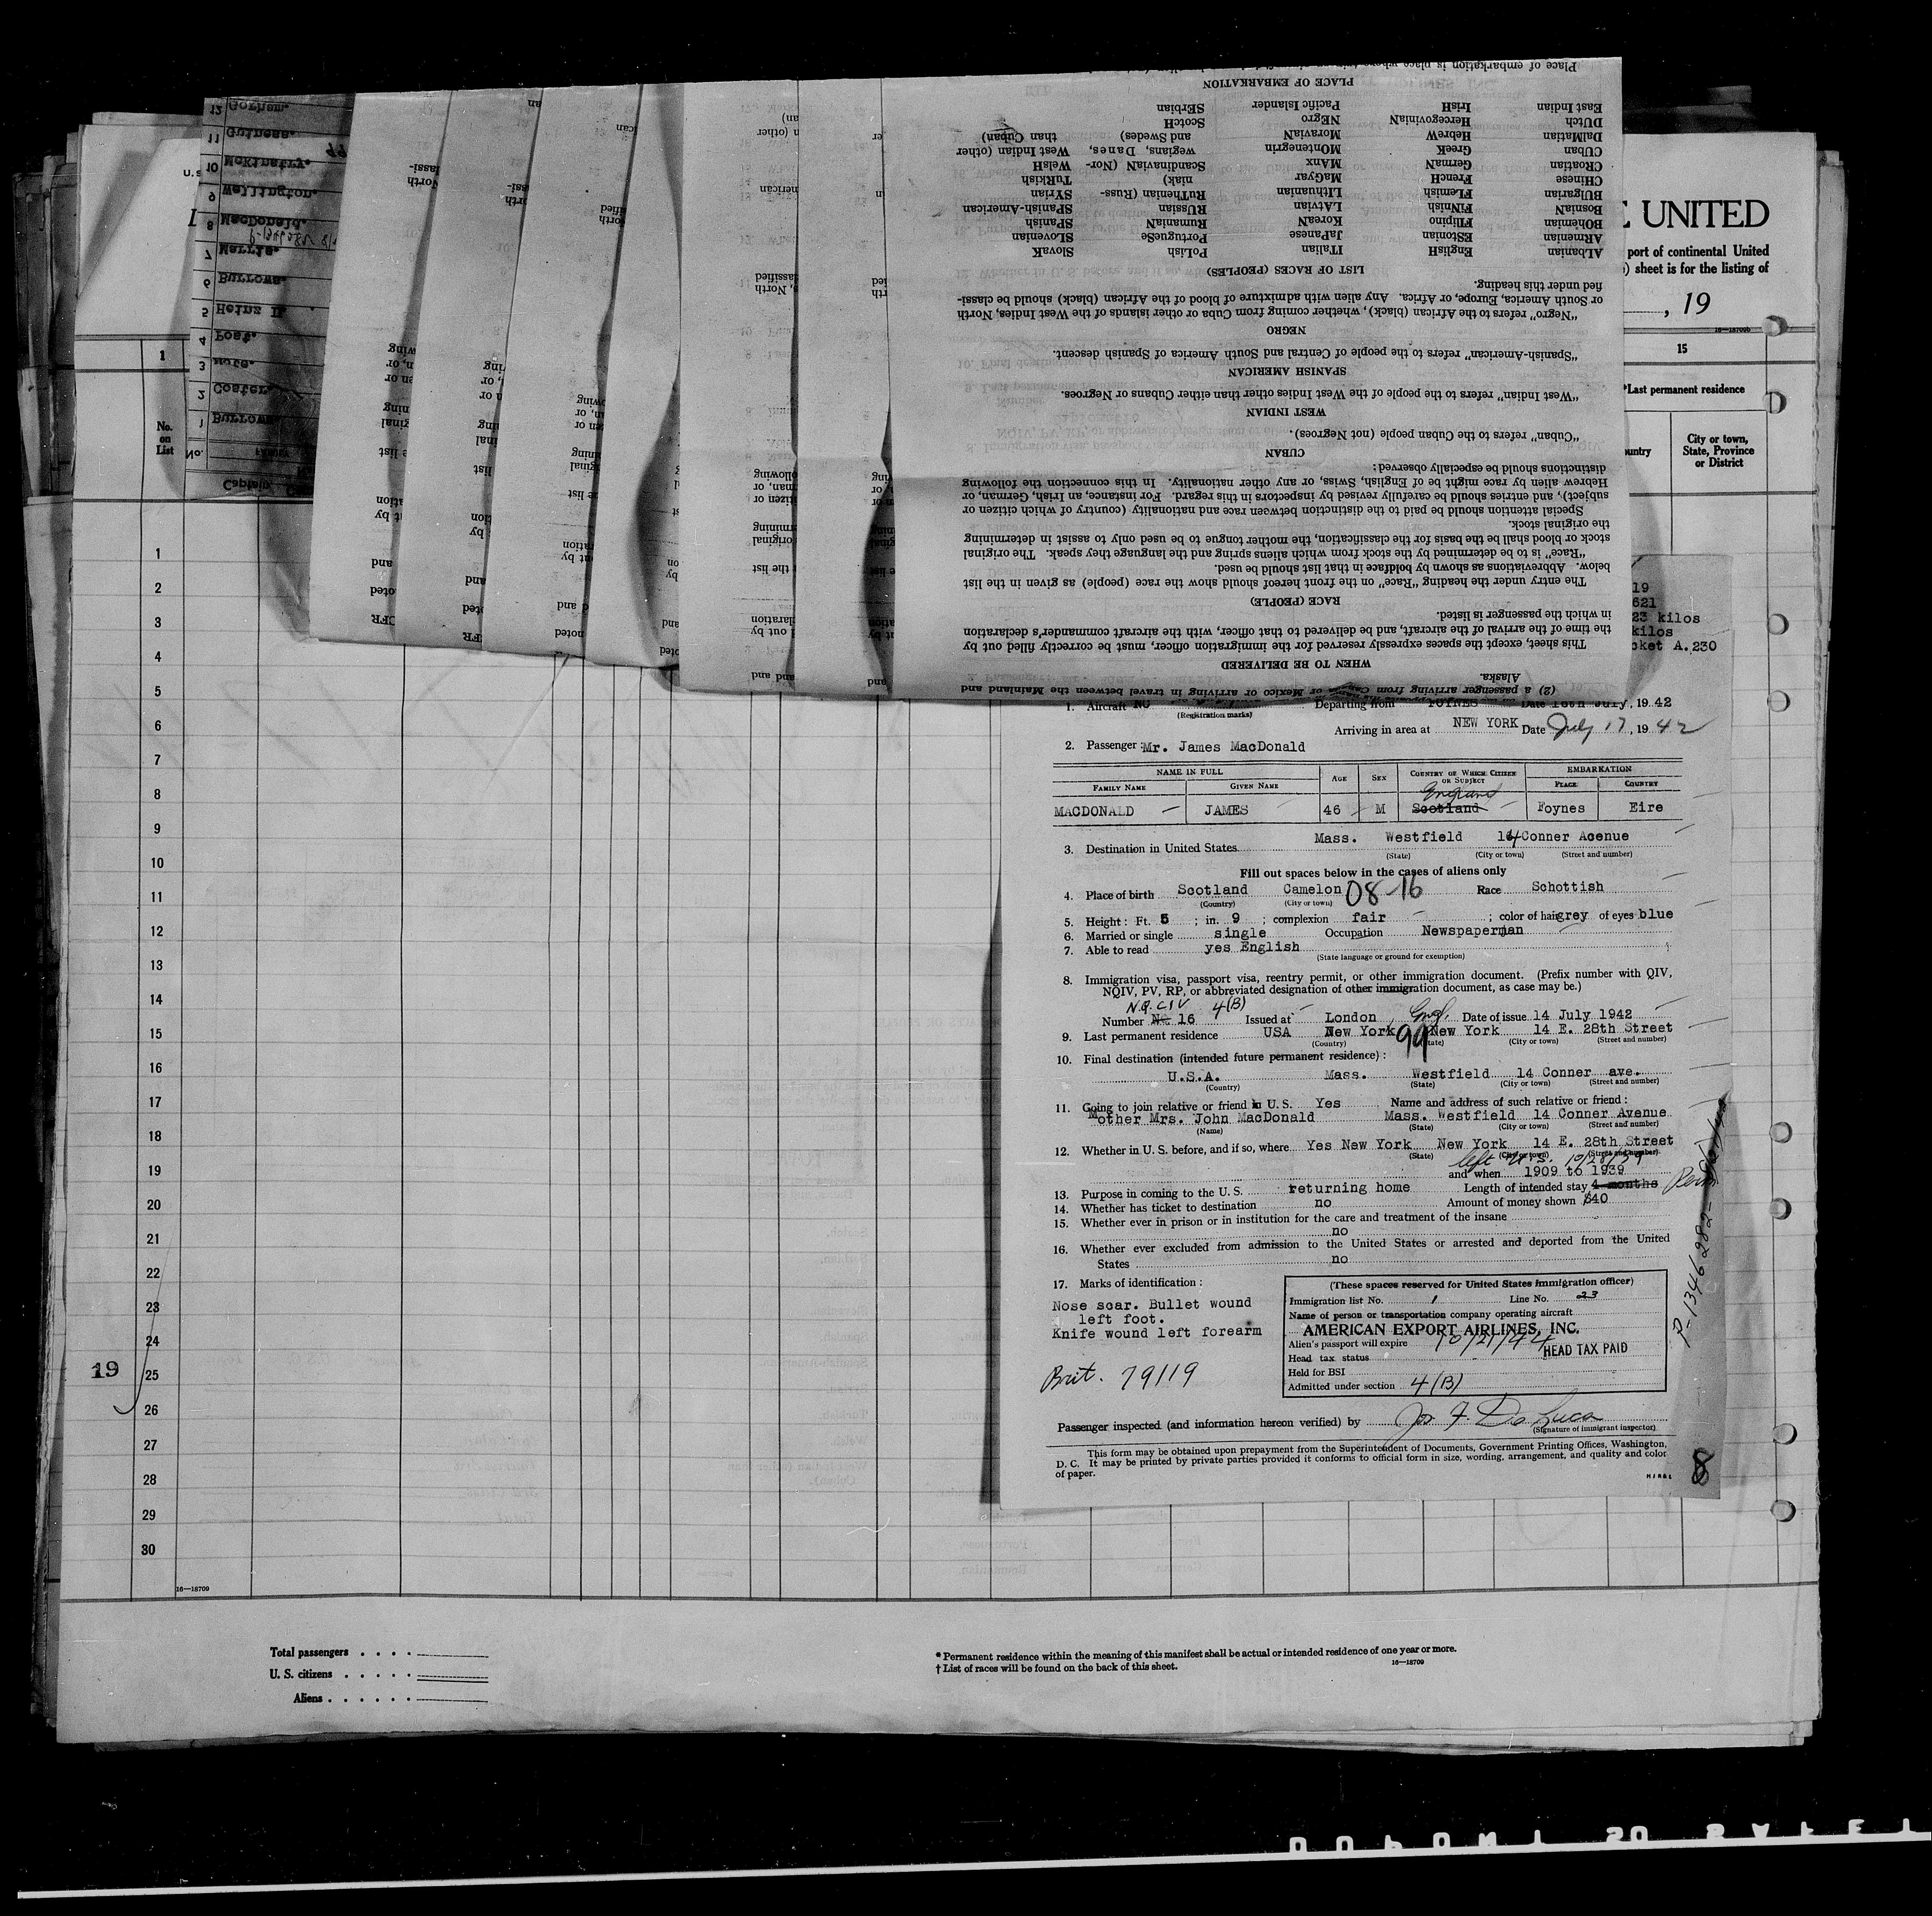 E UNITED
port of continental United
) sheet is for the listing of
, 19
16—18709b
1
15
*Last permanent residence
No.
on
List
untry
City or town,
State, Province
or District
12 Gorham.
11 Gutness.
10 McKinstry.
9 Wellington.
8 MacDonald.
7 Merris.
6 Burrows.
5 Heinz II.
4 Post.
3 Note.
2 Coster.
1 Burrows.
No. FAMILY
Captain
(2) a passenger arriving from Canada or Mexico or arriving in travel between the Mainland and
Alaska.
WHEN TO BE DELIVERED
This sheet, except the spaces expressly reserved for the immigration officer, must be correctly filled out by
the time of the arrival of the aircraft, and be delivered to that officer, with the aircraft commander's declaration
in which the passenger is listed.
RACE (PEOPLE)
The entry under the heading "Race" on the front hereof should show the race (people) as given in the list
below. Abbreviations as shown by boldface in that list should be used.
"Race" is to be determined by the stock from which aliens spring and the language they speak. The original
stock or blood shall be the basis for the classification, the mother tongue to be used only to assist in determining
the original stock.
Special attention should be paid to the distinction between race and nationality (country of which citizen or
subject), and entries should be carefully revised by inspectors in this regard. For instance, an Irish, German, or
Hebrew alien by race might be of English, Swiss, or any other nationality. In this connection the following
distinctions should be especially observed:
CUBAN
"Cuban" refers to the Cuban people (not Negroes).
WEST INDIAN
"West Indian" refers to the people of the West Indies other than either Cubans or Negroes.
SPANISH AMERICAN
"Spanish-American" refers to the people of Central and South America of Spanish descent.
NEGRO
"Negro" refers to the African (black), whether coming from Cuba or other islands of the West Indies, North
or South America, Europe, or Africa. Any alien with admixture of blood of the African (black) should be classi-
fied under this heading.
LIST OF RACES (PEOPLES)
ALbanian ENglisH ITalian PoLish SlovaK
ARmenian EStonian JaPanese PortugueSe SLovenian
BOhemian FIlipino KoreaN RumaniaN SPanish
BosniaN FiNnish LAtvian RUssian SPanish-American
BUlgarian FLemish Lithuanian RuThenian (Russ- SYrian
CHinese FrencH MaGyar niak) TuRkish
CRoatian GermaN MAnx ScandinaviaN (Nor- WelsH
CUban GreeK MOntenegrin wegians, Danes, West Indian (other
DalMatian HebreW MoraviaN and Swedes) than Cuban)
DUtch HercegoviniaN NEgro ScotcH
East Indian IrisH Pacific Islander SErbian
PLACE OF EMBARKATION
19
621
23 kilos
kilos
cket A.230
1. Aircraft NC (Registration marks) Departing from FOYNES Date 16th July, 1942
Arriving in area at NEW YORK Date July 17, 1942
2. Passenger: Mr. James MacDonald
NAME IN FULL AGE SEX COUNTRY OF WHICH CITIZEN OR SUBJECT EMBARKATION
FAMILY NAME GIVEN NAME PLACE COUNTRY
England
MACDONALD JAMES 46 M Scotland Foynes Eire
3. Destination in United States Mass. Westfield 14 Conner Acenue
(State) (City or town) (Street and number)
Fill out spaces below in the cases of aliens only
4. Place of birth Scotland Camelon 08-16 Race Schottish
(Country) (City or town)
5. Height: Ft. 5 ; in. 9 ; complexion fair ; color of hair grey of eyes blue
6. Married or single single Occupation Newspaperman
7. Able to read yes English
(State language or ground for exemption)
8. Immigration visa, passport visa, reentry permit, or other immigration document. (Prefix number with QIV,
NQIV, PV, RP, or abbreviated designation of other immigration document, as case may be.)
N.Q.CIV 4(B)
Number No 16 Issued at London Engl. Date of issue 14 July 1942
9. Last permanent residence USA New York 99 New York 14 E. 28th Street
(Country) (State) (City or town) (Street and number)
10. Final destination (intended future permanent residence):
U.S.A. Mass. Westfield 14 Conner ave.
(Country) (State) (City or town) (Street and number)
11. Going to join relative or friend in U. S. Yes Name and address of such relative or friend:
Mother Mrs. John MacDonald Mass. Westfield 14 Conner Avenue
(Name) (State) (City or town) (Street and number)
12. Whether in U. S. before, and if so, where Yes New York New York 14 E. 28th Street
(State) (City or town) (Street and number)
left U.S. 10/28/39
and when 1909 to 1939
13. Purpose in coming to the U. S. returning home Length of intended stay 4 months
14. Whether has ticket to destination no Amount of money shown $40
15. Whether ever in prison or in institution for the care and treatment of the insane
no
16. Whether ever excluded from admission to the United States or arrested and deported from the United
States no
17. Marks of identification:
Nose scar. Bullet wound
left foot.
Knife wound left forearm
Brit. 79119
(These spaces reserved for United States immigration officer)
Immigration list No. 1 Line No. 23
Name of person or transportation company operating aircraft
AMERICAN EXPORT AIRLINES, INC.
Alien's passport will expire 10/21/44
Head tax status HEAD TAX PAID
Held for BSI
Admitted under section 4(B)
Passenger inspected (and information hereon verified) by Jos F. De Luca
(Signature of immigrant inspector)
This form may be obtained upon prepayment from the Superintendent of Documents, Government Printing Offices, Washington,
D. C. It may be printed by private parties provided it conforms to official form in size, wording, arrangement, and quality and color
of paper.
8
P-1346282-
1
2
3
4
5
6
7
8
9
10
11
12
13
14
15
16
17
18
19
20
21
22
23
24
25
26
27
28
29
30
19
16—18709
Total passengers
U. S. citizens
Aliens
* Permanent residence within the meaning of this manifest shall be actual or intended residence of one year or more.
† List of races will be found on the back of this sheet.
16—18709